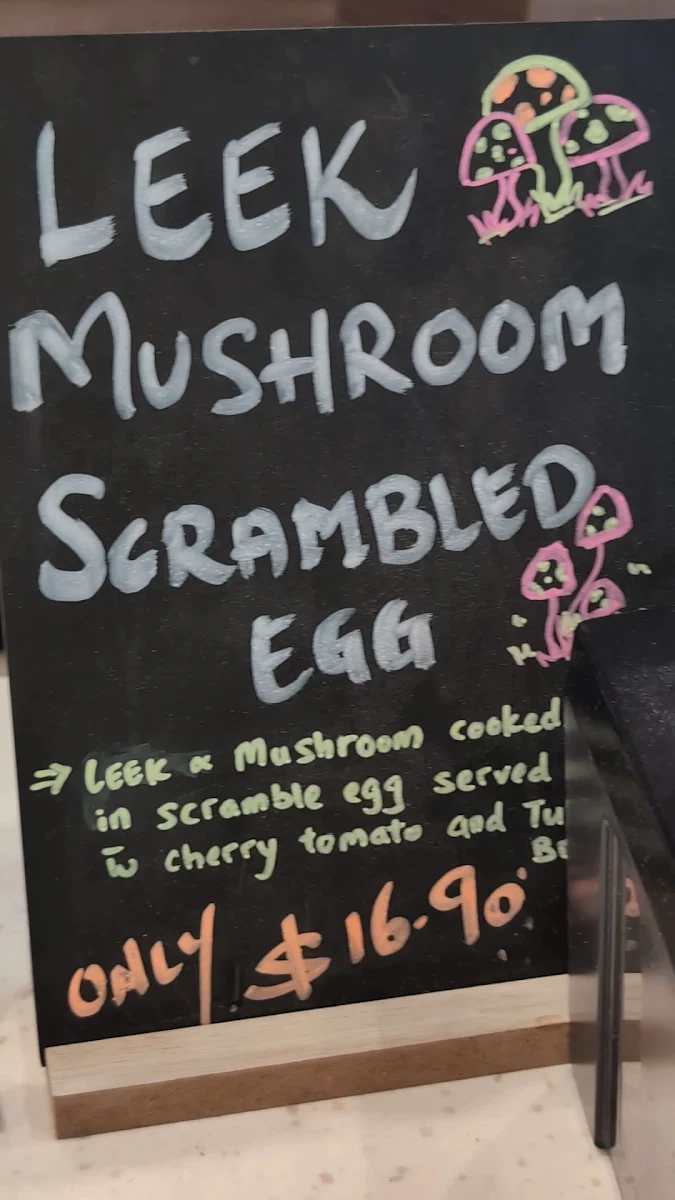 LEEK
MUSHROOM
SCRAMBLED
EGG
⇒ LEEK & Mushroom cooked
in scramble egg served
w cherry tomato and
ONLY $16.90